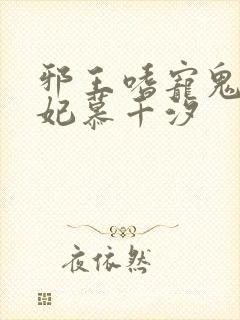 邪王嗜宠鬼
妃慕千汐
夜依然